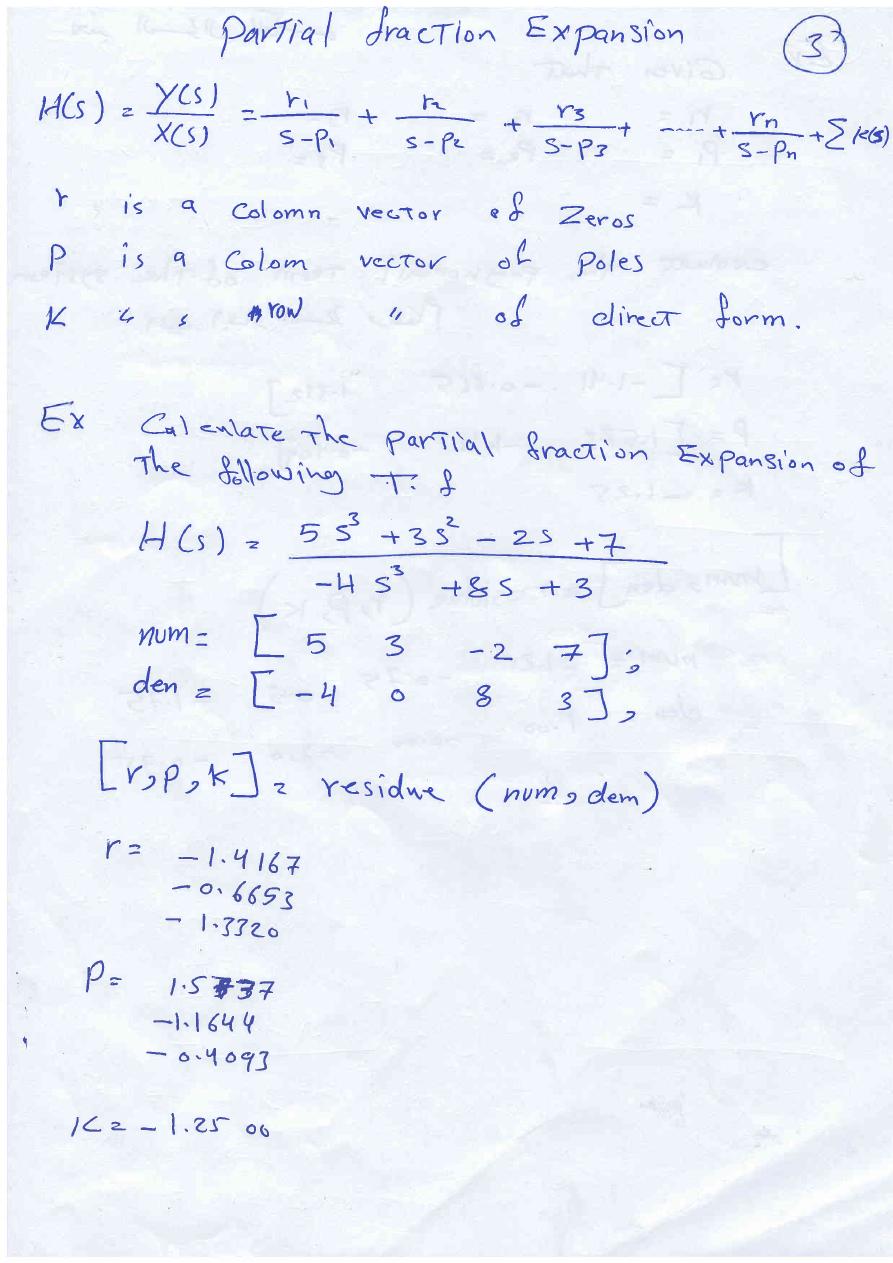 Partial fraction Expansion
3
H(s) = Y(s)/X(s) = r1/(s-p1) + r2/(s-p2) + r3/(s-p3) + ---- + rn/(s-pn) + Σ k(s)
r is a Colomn vector of Zeros
P is a Colom vector of Poles
K " " row " of direct form.
Ex Calculate The partiial fraction Expansion of
The following T.f
H(s) = (5s³ + 3s² - 2s + 7)/(-4s³ + 8s + 3)
num = [ 5 3 -2 7 ];
den = [ -4 0 8 3 ];
[r,p,k] = residue (num, dem)
r = -1.4167
-0.6653
-1.3320
P = 1.5737
-1.1644
-0.4093
K = -1.2500